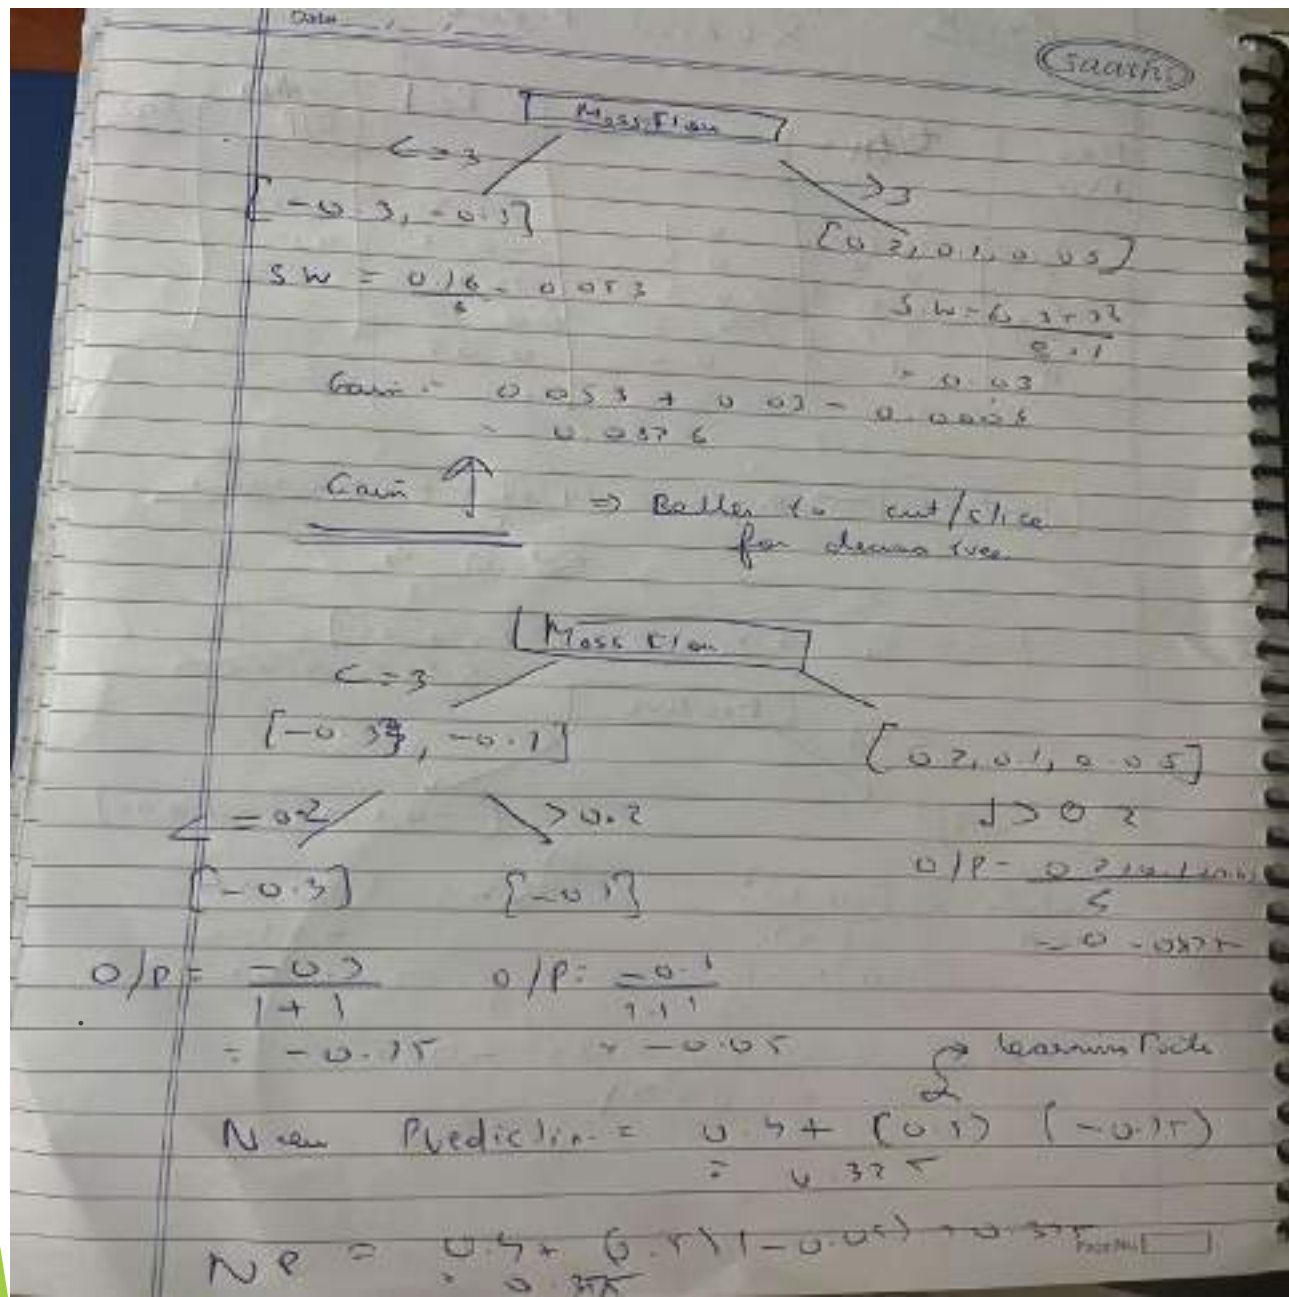 Date
Saarthi
Mass Flow
<=3
>3
[-0.3, -0.1]
[0.2, 0.1, 0.05]
S.W = 0.16 / 3 = 0.053
S.W =
= 0.03
Gain = 0.053 + 0.03 -
= 0.0876
Gain ↑ => Better to cut/slice
for tree
Mass Flow
<=3
[-0.3, -0.1]
[0.2, 0.1, 0.05]
<=0.2
>0.2
>0.2
[-0.3]
[-0.1]
O/P =
= 0.0875
O/P = -0.3 / 1+1
O/P = -0.1 / 1+1
= -0.15
= -0.05
→ Learning Rate
New Prediction = 0.4 + (0.5) (-0.15)
= 0.325
NP = 0.4 + (0.5) (-0.05) = 0.375
= 0.375
Page No.